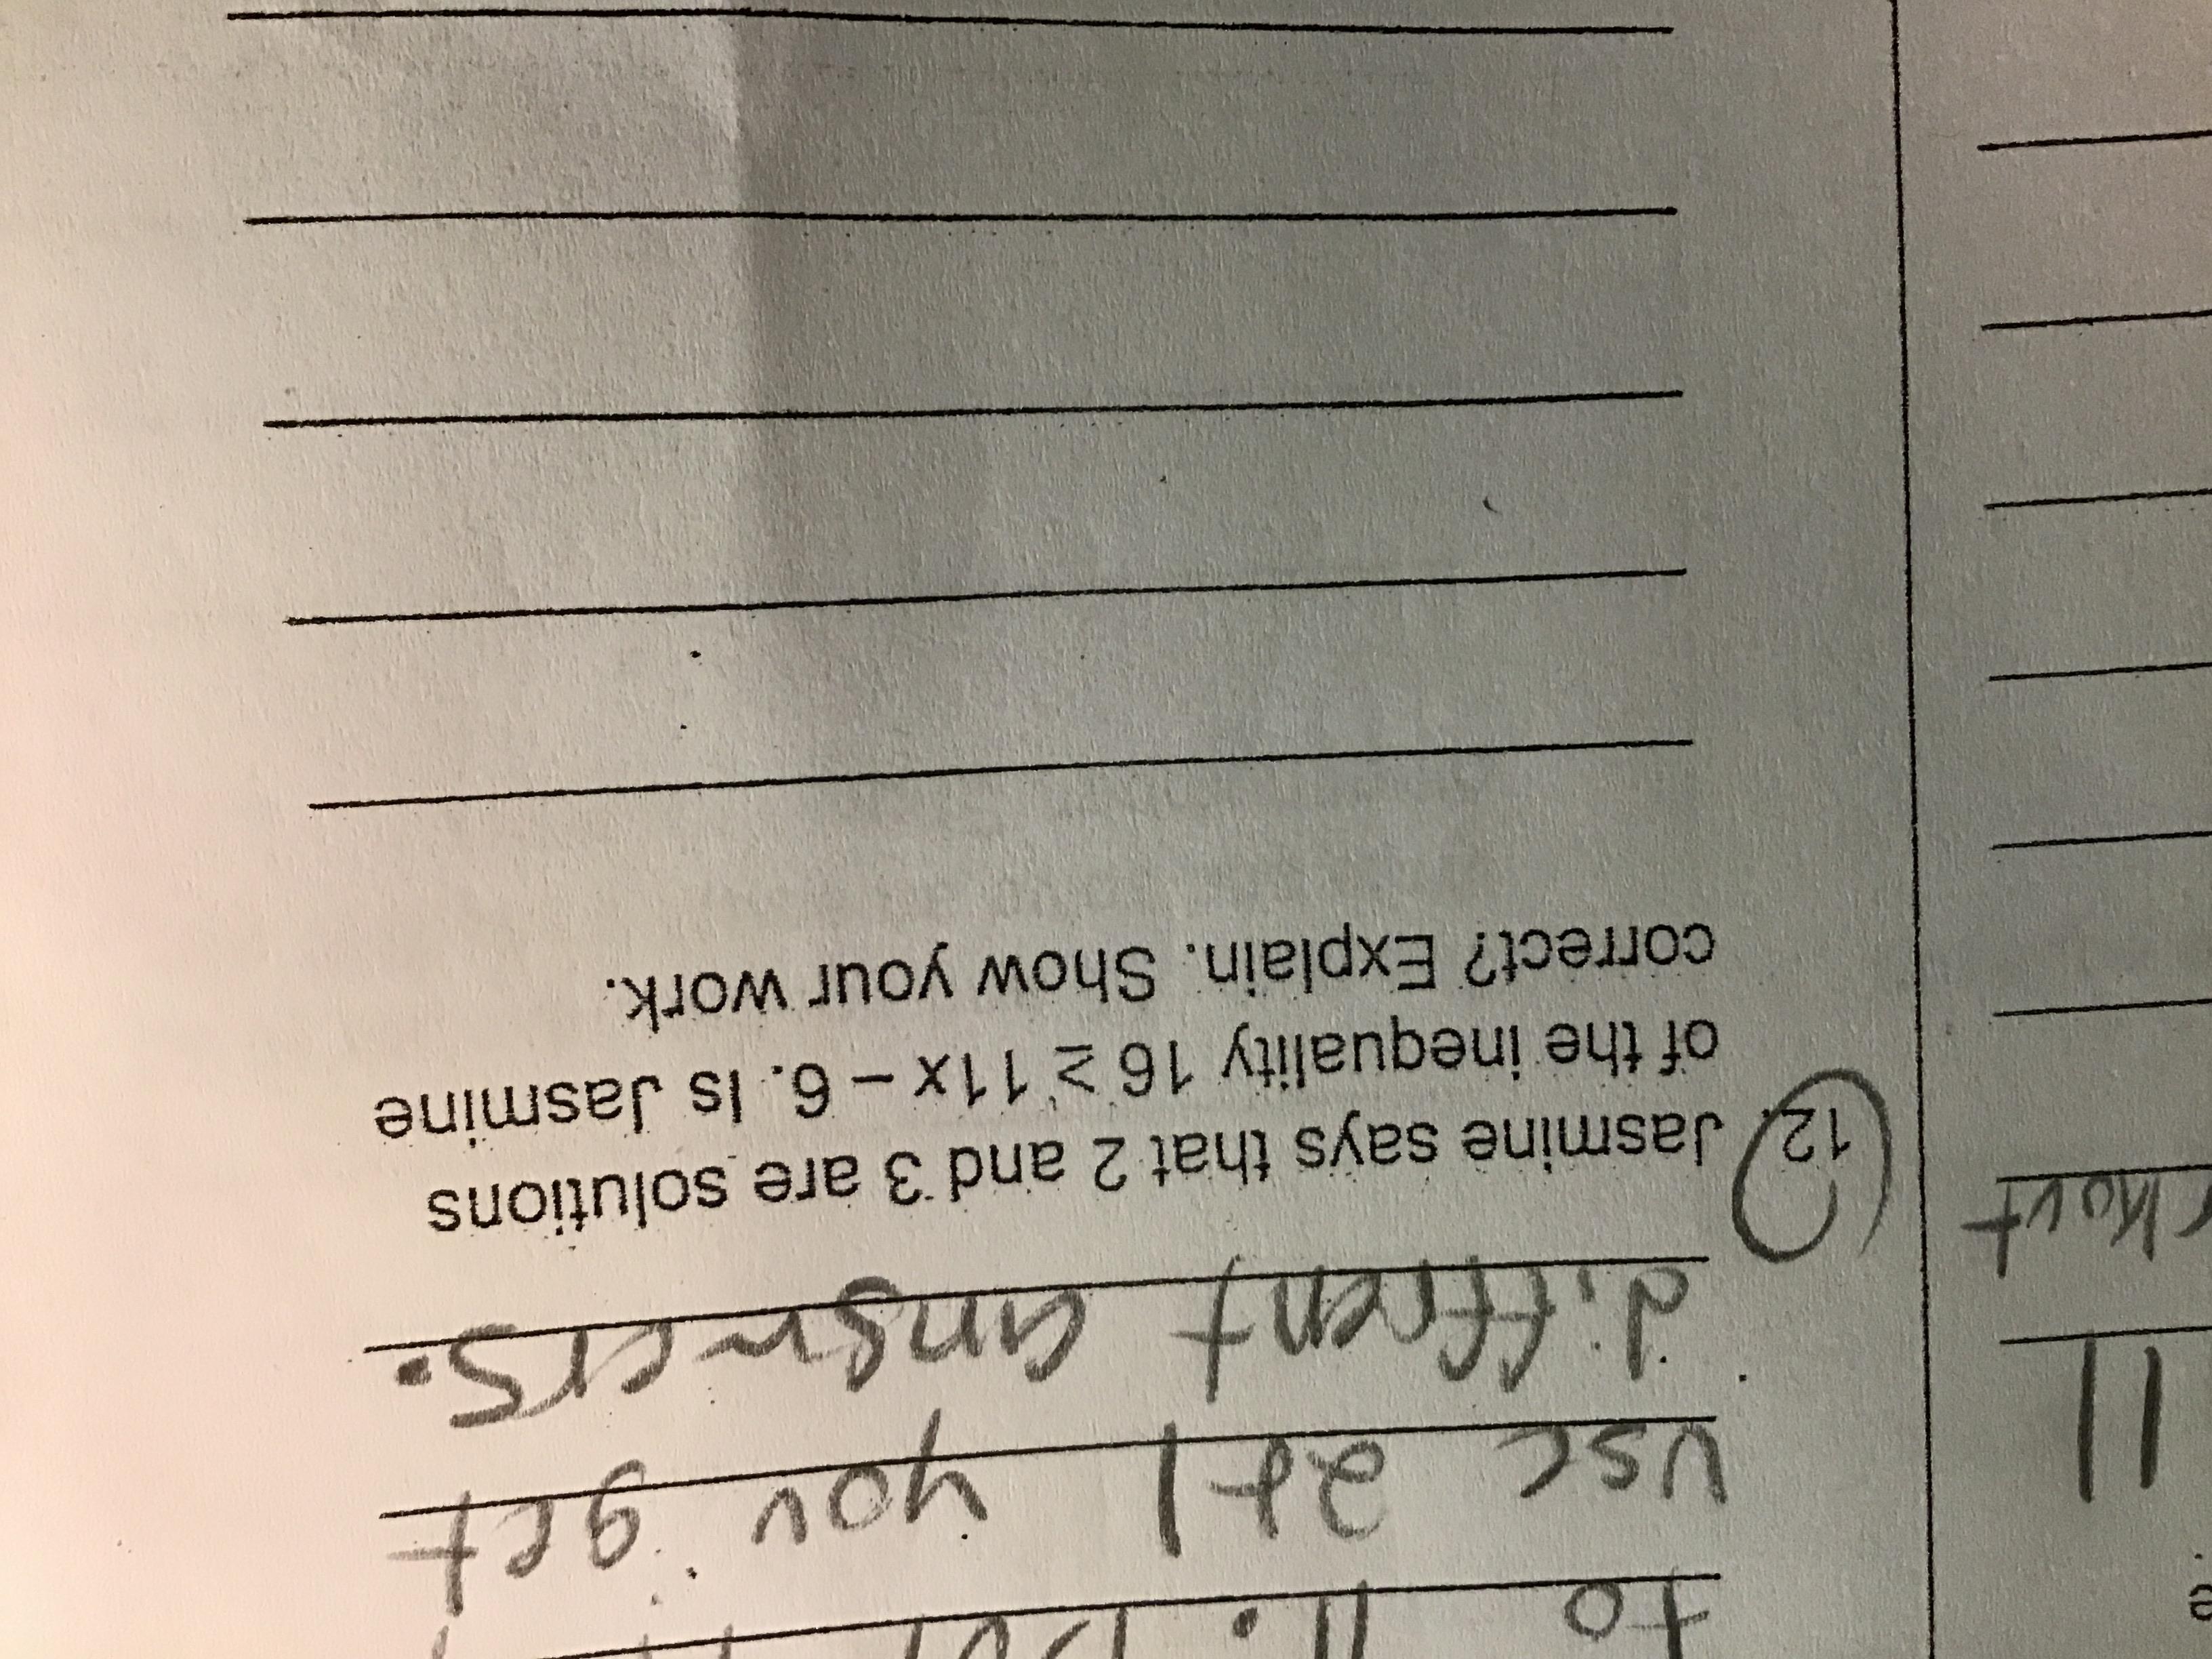 e
11
to 11.
use 2+1 you get
diffrent answers.
12. Jasmine says that 2 and 3 are solutions
of the inequality 16 ≥ 11x – 6. Is Jasmine
correct? Explain. Show your work.